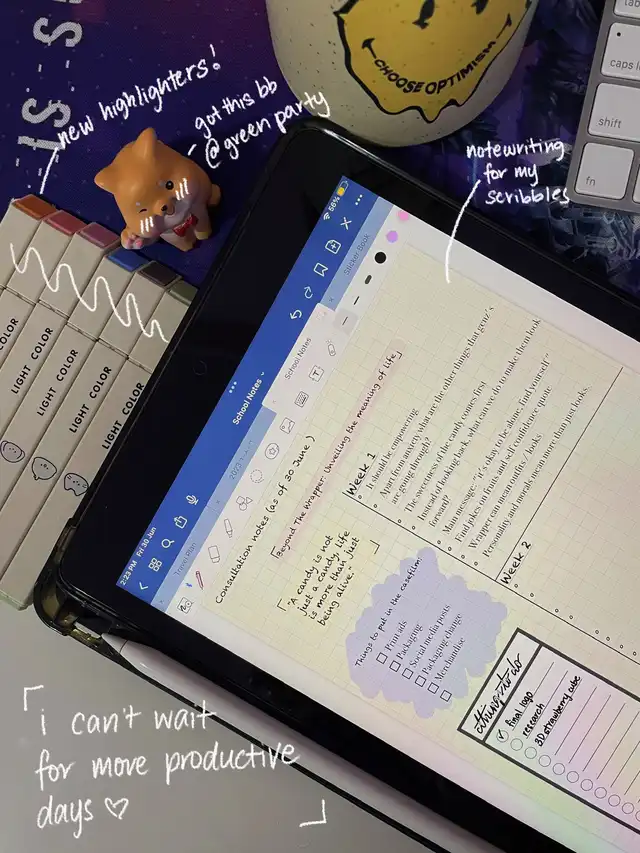 new highlighters!
got this bb
@ green party
CHOOSE OPTIMISM
caps l
shift
fn
notewriting
for my
scribbles
LIGHT COLOR
LIGHT COLOR
LIGHT COLOR
LIGHT COLOR
2:23 PM Fri 30 Jun
56%
School Notes
Travel Plan
School Notes
Sticker Book
Consultation notes (as of 30 June)
[Beyond The Wrapper: Unveiling the meaning of life]
"A candy is not
just a candy, life
is more than just
being alive."
Things to put in the casefilm:
Print ads
Packaging
Social media posts
Packaging change
Merchandise
Week 1
It should be empowering
Apart from anxiety what are the other things that genz's
are going through?
The sweetness of the candy comes first
Instead of looking back, what can we do to make them look
forward?
Main message: "it's okay to be alone, find yourself"
Find jokes on fruits and self confidence quote
Wrapper can mean outfits / looks
Personality and morals mean more than just looks.
Week 2
things to do
final logo
research
3D strawberry cube
i can't wait
for more productive
days ♡